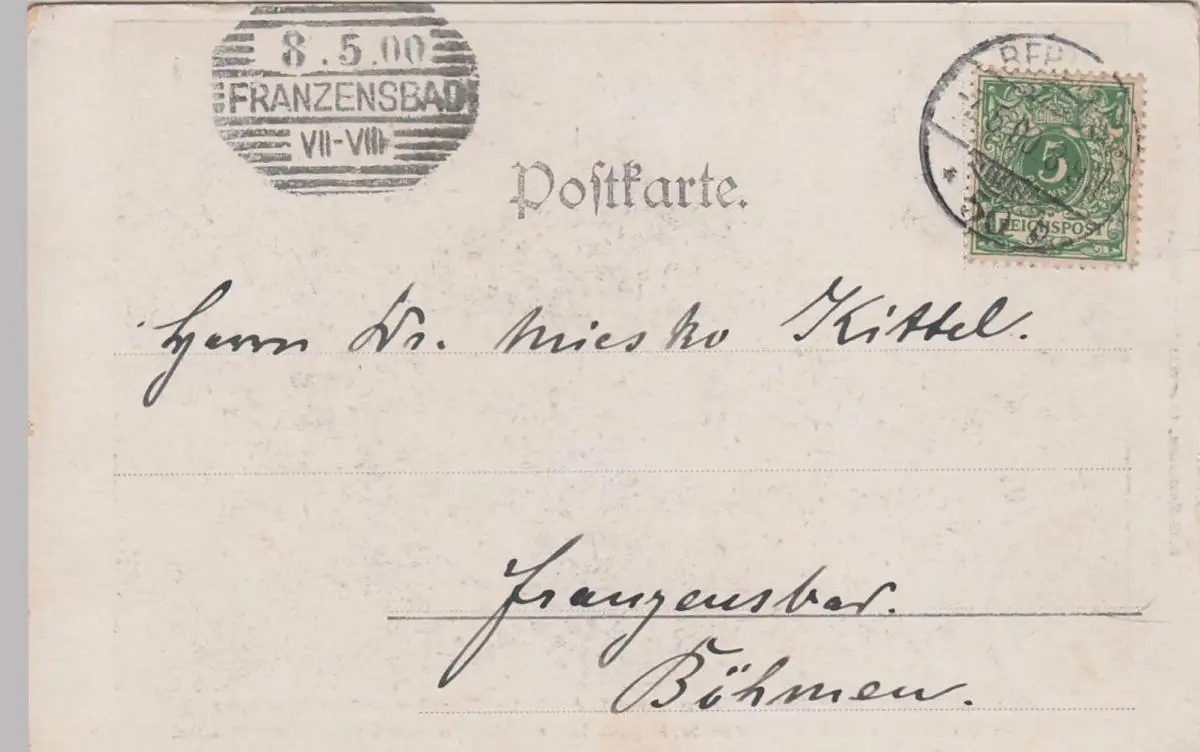 8.5.00
FRANZENSBAD
VII-VIII
Postkarte.
5
REICHSPOST
Herrn Dr. Miesko Kittel.
Franzensbad.
Böhmen.